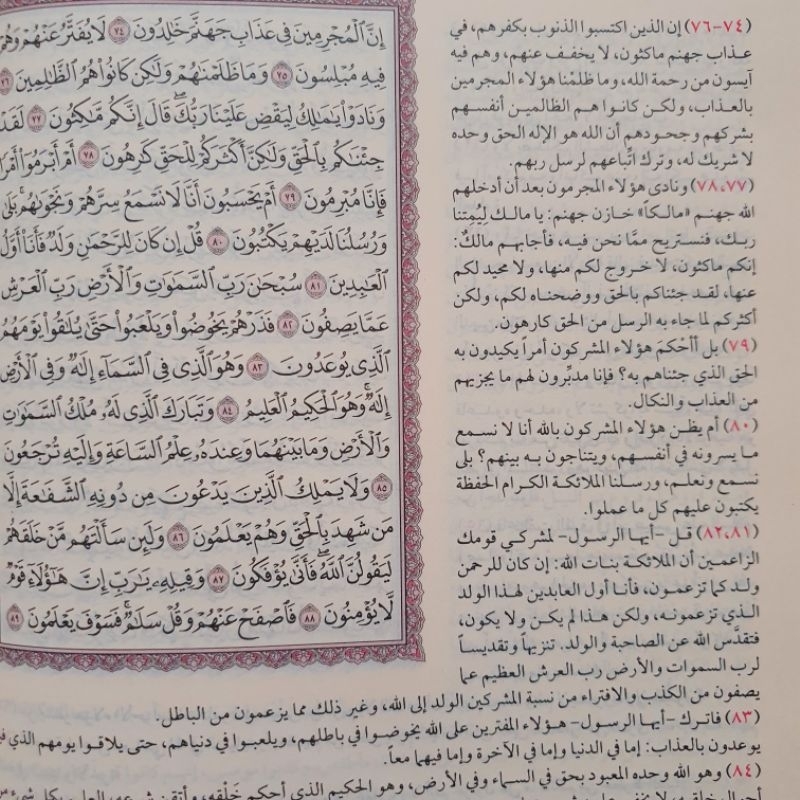 إِنَّ ٱلْمُجْرِمِينَ فِى عَذَابِ جَهَنَّمَ خَٰلِدُونَ ٧٤ لَا يُفَتَّرُ عَنْهُمْ وَهُمْ
فِيهِ مُبْلِسُونَ ٧٥ وَمَا ظَلَمْنَٰهُمْ وَلَٰكِن كَانُوا۟ هُمُ ٱلظَّٰلِمِينَ ٧٦
وَنَادَوْا۟ يَٰمَٰلِكُ لِيَقْضِ عَلَيْنَا رَبُّكَ ۖ قَالَ إِنَّكُم مَّٰكِثُونَ ٧٧ لَقَدْ
جِئْنَٰكُم بِٱلْحَقِّ وَلَٰكِنَّ أَكْثَرَكُمْ لِلْحَقِّ كَٰرِهُونَ ٧٨ أَمْ أَبْرَمُوٓا۟ أَمْرًا
فَإِنَّا مُبْرِمُونَ ٧٩ أَمْ يَحْسَبُونَ أَنَّا لَا نَسْمَعُ سِرَّهُمْ وَنَجْوَىٰهُم ۚ بَلَىٰ
وَرُسُلُنَا لَدَيْهِمْ يَكْتُبُونَ ٨٠ قُلْ إِن كَانَ لِلرَّحْمَٰنِ وَلَدٌ فَأَنَا۠ أَوَّلُ
ٱلْعَٰبِدِينَ ٨١ سُبْحَٰنَ رَبِّ ٱلسَّمَٰوَٰتِ وَٱلْأَرْضِ رَبِّ ٱلْعَرْشِ
عَمَّا يَصِفُونَ ٨٢ فَذَرْهُمْ يَخُوضُوا۟ وَيَلْعَبُوا۟ حَتَّىٰ يُلَٰقُوا۟ يَوْمَهُمُ
ٱلَّذِى يُوعَدُونَ ٨٣ وَهُوَ ٱلَّذِى فِى ٱلسَّمَآءِ إِلَٰهٌ وَفِى ٱلْأَرْضِ
إِلَٰهٌ ۚ وَهُوَ ٱلْحَكِيمُ ٱلْعَلِيمُ ٨٤ وَتَبَارَكَ ٱلَّذِى لَهُۥ مُلْكُ ٱلسَّمَٰوَٰتِ
وَٱلْأَرْضِ وَمَا بَيْنَهُمَا وَعِندَهُۥ عِلْمُ ٱلسَّاعَةِ وَإِلَيْهِ تُرْجَعُونَ
٨٥ وَلَا يَمْلِكُ ٱلَّذِينَ يَدْعُونَ مِن دُونِهِ ٱلشَّفَٰعَةَ إِلَّا
مَن شَهِدَ بِٱلْحَقِّ وَهُمْ يَعْلَمُونَ ٨٦ وَلَئِن سَأَلْتَهُم مَّنْ خَلَقَهُمْ
لَيَقُولُنَّ ٱللَّهُ ۖ فَأَنَّىٰ يُؤْفَكُونَ ٨٧ وَقِيلِهِۦ يَٰرَبِّ إِنَّ هَٰٓؤُلَآءِ قَوْمٌ
لَّا يُؤْمِنُونَ ٨٨ فَٱصْفَحْ عَنْهُمْ وَقُلْ سَلَٰمٌ ۚ فَسَوْفَ يَعْلَمُونَ ٨٩
(٧٤-٧٦) إن الذين اكتسبوا الذنوب بكفرهم، في
عذاب جهنم ماكثون، لا يخفف عنهم، وهم فيه
آيسون من رحمة الله، وما ظلمْنا هؤلاء المجرمين
بالعذاب، ولكن كانوا هم الظالمين أنفسهم
بشركهم وجحودهم أن الله هو الإله الحق وحده
لا شريك له، وترك اتِّباعهم لرسل ربهم.
(٧٧، ٧٨) ونادى هؤلاء المجرمون بعد أن أدخلهم
الله جهنم «مالكاً» خازن جهنم: يا مالك لِيُمِتنا
ربك، فنستريح ممَّا نحن فيه، فأجابهم مالكٌ:
إنكم ماكثون، لا خروج لكم منها، ولا محيد لكم
عنها، لقد جئناكم بالحق ووضحناه لكم، ولكن
أكثركم لما جاء به الرسل من الحق كارهون.
(٧٩) بل أأحْكمَ هؤلاء المشركون أمراً يكيدون به
الحق الذي جئناهم به؟ فإنا مدبِّرون لهم ما يجزيهم
من العذاب والنكال.
(٨٠) أم يظن هؤلاء المشركون بالله أنا لا نسمع
ما يسرونه في أنفسهم، ويتناجون به بينهم؟ بلى
نسمع ونعلم، ورسلنا الملائكة الكرام الحفظة
يكتبون عليهم كل ما عملوا.
(٨١، ٨٢) قل -أيها الرسول- لمشركي قومك
الزاعمين أن الملائكة بنات الله: إن كان للرحمن
ولد كما تزعمون، فأنا أول العابدين لهذا الولد
الذي تزعمونه، ولكن هذا لم يكن ولا يكون،
فتقدَّس الله عن الصاحبة والولد. تنزيهاً وتقديساً
لرب السموات والأرض رب العرش العظيم عما
يصفون من الكذب والافتراء من نسبة المشركين الولد إلى الله، وغير ذلك مما يزعمون من الباطل.
(٨٣) فاترك -أيها الرسول- هؤلاء المفترين على الله يخوضوا في باطلهم، ويلعبوا في دنياهم، حتى يلاقوا يومهم الذي
يوعدون بالعذاب: إما في الدنيا وإما في الآخرة وإما فيهما معاً.
(٨٤) وهو الله وحده المعبود بحق في السماء وفي الأرض، وهو الحكيم الذي أحكم خَلْقه، وأتقن شرعه، العليم بكل شيء